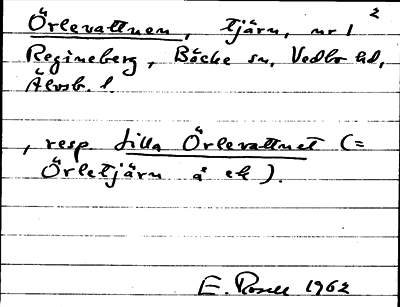 2
Örlevattnen, tjärn, nr 1
Regineberg, Bäcke sn, Vedbo hd,
Älvsb. l.
, resp Lilla Örlevattnet (=
Örletjärn å ek).
E. Rosell 1962